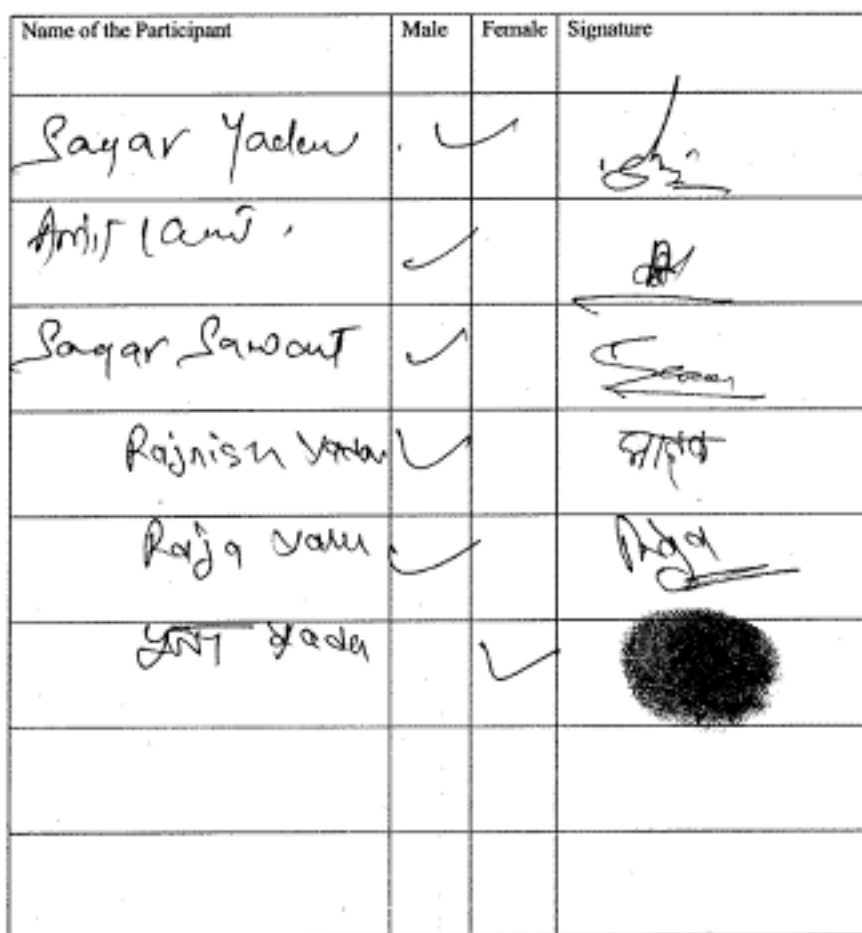 Name of the Participant Male Female Signature
Sagar Yadav
Amit
Sagar Sawant Sawan
Rajnish Yadav
Raja Yadav Raja
Yadav